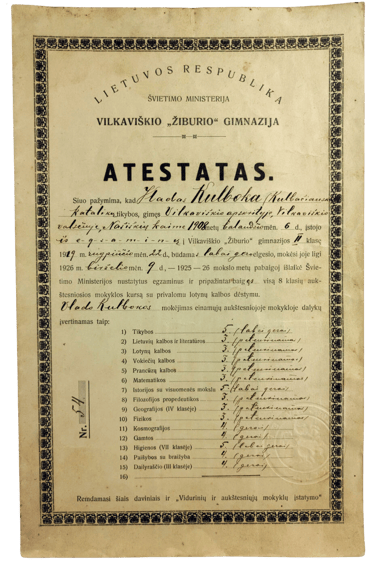 LIETUVOS RESPUBLIKA
ŠVIETIMO MINISTERIJA
VILKAVIŠKIO „ŽIBURIO“ GIMNAZIJA
ATESTATAS.
Šiuo pažymima, kad Vlada Kulboka,
katalikų tikybos, gimęs Vilkaviškio apskrityje, Vilkaviškio
valsčiuje, kaime 1908 metų balandžio mėn. 6 d., įstojo
Vilkaviškio „Žiburio“ gimnazijos II klasę
1919 m. rugpiūčio mėn. d., būdama labai gero elgesio, mokėsi joje ligi
1926 m. birželio mėn. 9 d., — 1925 — 26 mokslo metų pabaigoj išlaikė Švie-
timo Ministerijos nustatytus egzaminus ir pripažintas baigęs visą 8 klasių auk-
štesniosios mokyklos kursą su privaloma lotynų kalbos dėstymu.
Vlado Kulbokos mokėjimas einamųjų aukštesniojoje mokykloje dalykų
įvertinamas taip:
1) Tikybos 5 (labai gerai)
2) Lietuvių kalbos ir literatūros 3 (patenkinamai)
3) Lotynų kalbos 3 (patenkinamai)
4) Vokiečių kalbos 3 (patenkinamai)
5) Prancūzų kalbos 3 (patenkinamai)
6) Matematikos 3 (patenkinamai)
7) Istorijos su visuomenės mokslu 5 (labai gerai)
8) Filosofijos propedeutikos 3 (patenkinamai)
9) Geografijos (IV klasėje) 3 (patenkinamai)
10) Fizikos 3 (patenkinamai)
11) Kosmografijos 4 (gerai)
12) Gamtos 4 (gerai)
13) Higienos (VII klasėje) 5 (labai gerai)
14) Paišybos su braižyba 4 (gerai)
15) Dailyraščio (III klasėje) 4 (gerai)
16)
Nr. 54
Remdamasi šiais daviniais ir „Vidurinių ir aukštesniųjų mokyklų įstatymo“